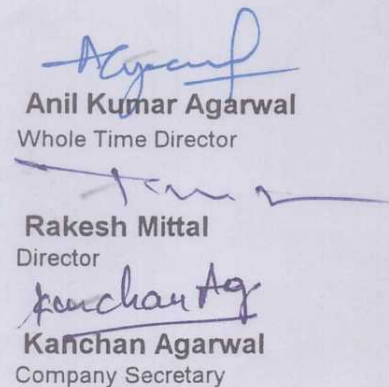 Anil Kumar Agarwal
Whole Time Director
Rakesh Mittal
Director
Kanchan Ag
Kanchan Agarwal
Company Secretary